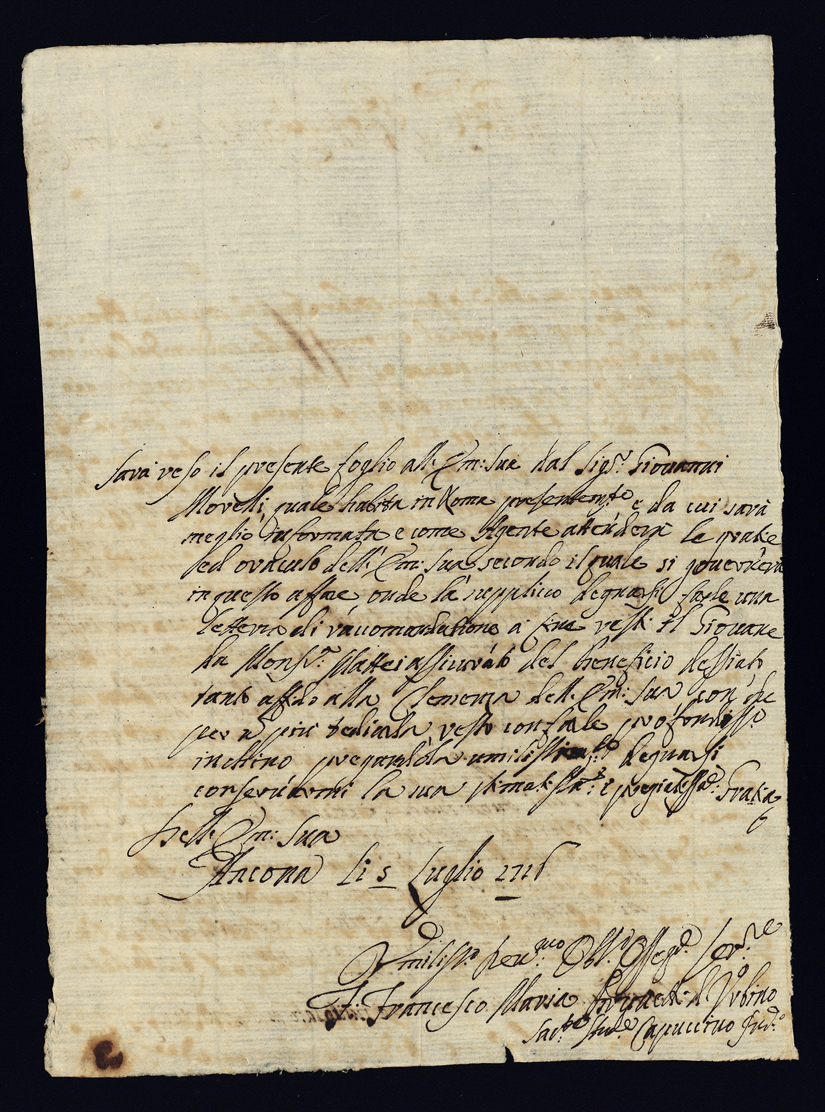 Sarà reso il presente foglio all: Em: Sua dal Sig.r Giovanni
Morelli, quale habita in Roma presentem.te e da cui sarà
meglio informata e come Agente attenderà le gratie
ed oraculo dell: Em: Sua secondo il quale si governerà
in questo affare onde la supplico degnarsi farle una
lettera di raccomandatione a fine resti il Giovane
da Mons.r Mattei assicurato del beneficio
tanto affido alla Clemenza dell: Em: Sua con che
per a piè resto con tale profondiss.o
inchino pregandola umilissimam.te degnarsi
conservarmi la sua stimatiss.a e pregiatiss.a Gratia
Dell: Em: Sua
Ancona li 5 Luglio
Umiliss.o Dev.mo Obl.o Osseq.o Ser.re
F. Francesco Maria d'Urbino
Capuccino